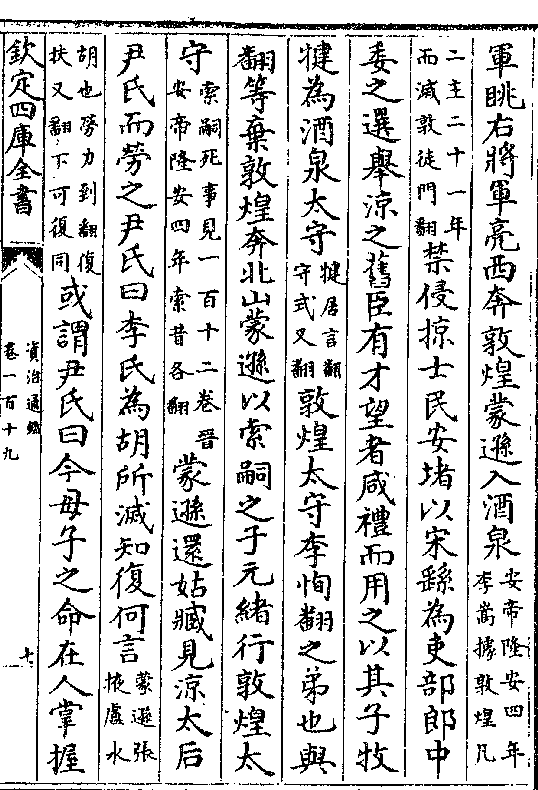 軍眺右將軍亮西奔敦煌蒙遜入酒泉安帝隆安四年李暠據敦煌凡
二主二十一年而滅敦徒門翻禁侵掠士民安堵以宋繇為吏部郎中
委之選舉涼之舊臣有才望者咸禮而用之以其子牧
犍為酒泉太守犍居言翻守式又翻敦煌太守李恂翻之弟也與
翻等棄敦煌奔北山蒙遜以索嗣之子元緒行敦煌太
守索嗣死事見一百十二卷晉安帝隆安四年索昔各翻蒙遜還姑臧見涼太后
尹氏而勞之尹氏曰李氏為胡所滅知復何言蒙遜張掖盧水
胡也勞力到翻復扶又翻下可復同或謂尹氏曰今母子之命在人掌握
欽定四庫全書
資治通鑑
卷一百十九
七